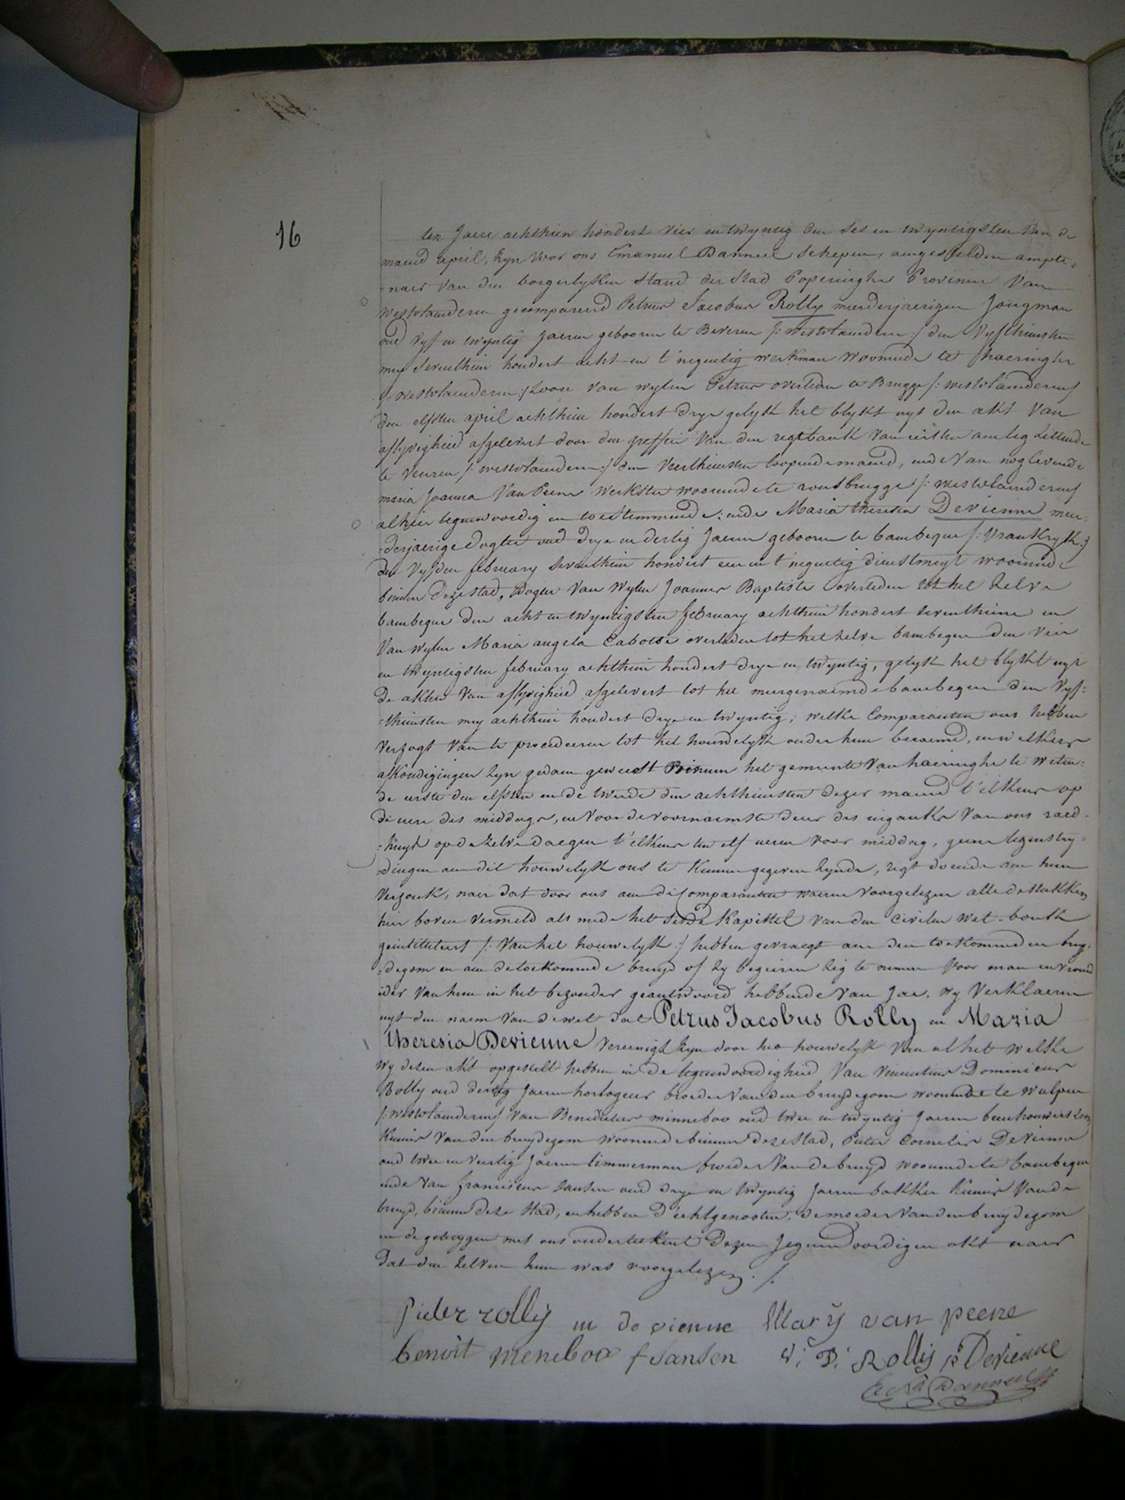 16
ten Jaere achthien hondert vier en twyntig den ses en twyntigsten van de
maend april, zyn voor ons Emanuel Danneel schepen, aengestelden ampte-
-naer van den borgerlyken stand der stad Poperinghe Provincie van
westvlaenderen gecompareerd Petrus Jacobus Rolly meerderjaerigen Jongman
oud vyf en twyntig Jaeren gebooren te Beveren /: westvlaenderen :/ den vyfthiensten
mey seventhien hondert acht en t'negentig werkman woonende tot haeringhe
/: westvlaenderen :/ zoon van wylen Petrus overleden te Brugge /: westvlaenderen :/
den elfsten april achthien hondert drye gelyk het blykt uyt den akt van
aflyvigheid afgelevert door den greffier van den regtbank van eersten aenleg zittende
te veuren /: westvlaenderen :/ den veerthiensten loopende maend, ende van nog levende
maria Joanna Van Peene werkster woonende te rousbrugge /: westvlaenderen :/
alhier tegenwoordig en toestemmende: ende Maria theresia Devienne meer-
-derjaerige dogter oud drye en dertig Jaeren gebooren te bambeque /: vrankryk :/
den vyfden february seventhien hondert een en t'negentig dienstmeyt woonende
binnen deze stad, dogter van wylen Joannes Baptiste overleden tot het zelve
bambeque den acht en twyntigsten february achthien hondert seventhiene en
van wylen Maria angela Cabotse overleden tot het zelve bambeque den vier
en twyntigsten february achthien hondert drye en twyntig, gelyk het blykt uyt
de akten van aflyvigheid afgelevert tot het meergenaemde bambeque den vyf-
-thiensten mey achthien hondert drye en twyntig; welke Comparanten ons hebben
verzogt van te procedeeren tot het houwelyk onder hun beraemd, en welkers
afkondigingen zyn gedaen geweest Binnen het gemeente van haeringhe te weten:
de eerste den elfsten en de tweede den achthiensten dezer maend t'elkens op
de uere des middags, en voor de voornaemste deure des ingank van ons raed-
-huys op de zelve daegen t'elkens ten elf ueren voor middag, geene tegenstry-
-dingen aen dit houwelyk ons te kennen gegeven zynde, regt doende aen hun
verzoek, naer dat door ons aen de Comparanten waeren voorgelezen alle de stukken
hier boven vermeld als mede het sesde kapittel van den civilen wet-bouk
geintituleert /: van het houwelyk :/ hebben gevraegt aen den toekomenden bruy-
-degom en aen de toekomende bruyd of zy begeeren zig te nemen voor man en vrouw
ider van hun in het bezonder geantwoord hebbende van Jae, wy verklaeren
uyt den naem van de wet dat Petrus Jacobus Rolly en Maria
theresia Devienne vereenigt zyn door het houwelyk van al het welke
wy dezen akt opgestelt hebben in de tegenwoordigheid van Dominicus
Rolly oud dertig Jaeren horlogeur broeder van den bruydegom woonende te wulpen
/: westvlaenderen :/ van Benedictus minneboo oud twee en twyntig Jaeren
kennis van den bruydegom woonende binnen deze stad, Pieter Cornelis Devienne
oud twee en veertig Jaeren timmerman broeder van de bruyd woonende te bambeque
ende van franciscus Jansen oud drye en twyntig Jaeren bakker kennis van de
bruyd, binnen deze stad, en hebben d'echtgenooten, de moeder van den bruydegom
en de getuygen met ons onderteekent dezen Jegenwoordigen akt naer
dat den zelven hun was voorgelezen. /.
Pieter rolly m de vienne Mary van peene
benoit meneboo f Jansen V: D: Rolly p Devienne